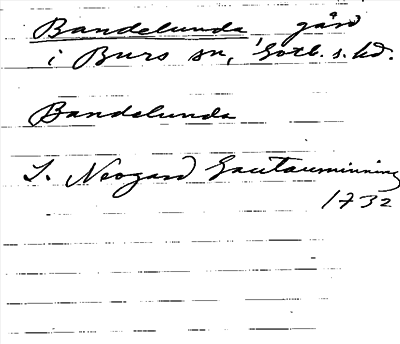 Bandelunda gård
i Burs sn, Gotl. s. hd.
Bandelunda
J. Neogard Gautauminning
1732